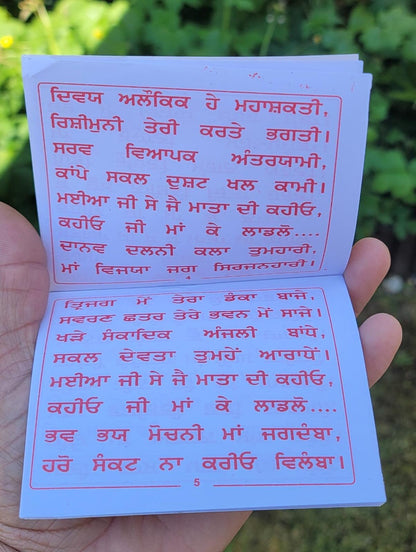 ਦਿਵਯ ਅਲੌਕਿਕ ਹੇ ਮਹਾਸ਼ਕਤੀ,
ਰਿਸ਼ੀਮੁਨੀ ਤੇਰੀ ਕਰਤੇ ਭਗਤੀ।
ਸਰਵ ਵਿਆਪਕ ਅੰਤਰਯਾਮੀ,
ਕਾਂਪੇ ਸਕਲ ਦੁਸ਼ਟ ਖਲ ਕਾਮੀ।
ਮਈਆ ਜੀ ਸੇ ਜੈ ਮਾਤਾ ਦੀ ਕਹੀਓ,
ਕਹੀਓ ਜੀ ਮਾਂ ਕੇ ਲਾਡਲੋ....
ਦਾਨਵ ਦਲਨੀ ਕਲਾ ਤੁਮਹਾਰੀ,
ਮਾਂ ਵਿਜਯਾ ਜਗ ਸਿਰਜਨਹਾਰੀ।
4
ਤ੍ਰਿਜਗ ਮੇਂ ਤੇਰਾ ਡੰਕਾ ਬਾਜੇ,
ਸਵਰਣ ਛਤਰ ਤੇਰੇ ਭਵਨ ਮੇਂ ਸਾਜੇ।
ਖੜੇ ਸੰਕਾਦਿਕ ਅੰਜਲੀ ਬਾਂਧੇ,
ਸਕਲ ਦੇਵਤਾ ਤੁਮਹੇਂ ਆਰਾਧੇਂ।
ਮਈਆ ਜੀ ਸੇ ਜੈ ਮਾਤਾ ਦੀ ਕਹੀਓ,
ਕਹੀਓ ਜੀ ਮਾਂ ਕੇ ਲਾਡਲੋ....
ਭਵ ਭਯ ਮੋਚਨੀ ਮਾਂ ਜਗਦੰਬਾ,
ਹਰੋ ਸੰਕਟ ਨਾ ਕਰੀਓ ਵਿਲੰਬਾ।
5